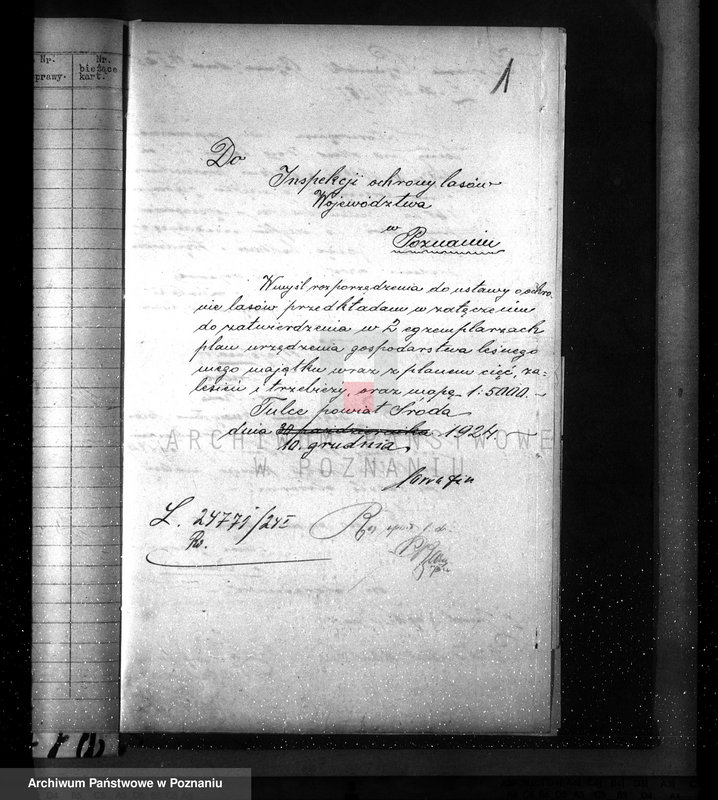 Nr.
prawy.
Nr.
bieżące
kart.
1
Do
Inspekcji ochrony lasów
Województwa
w
Poznaniu
Wmyśl rozporządzenia do ustawy o ochro-
nie lasów przedkładam w załączeniu
do zatwierdzenia w 2 egzemplarzach
plan urządzenia gospodarstwa leśnego
mego majątku wraz z planem cięć, za-
lesień i trzebieży, oraz mapę 1:5000.-
Tulce powiat Środa
dnia 30 października 1924
10. grudnia.
L. 24771/24
ARCHIWUM PAŃSTWOWE
W POZNANIU
Archiwum Państwowe w Poznaniu